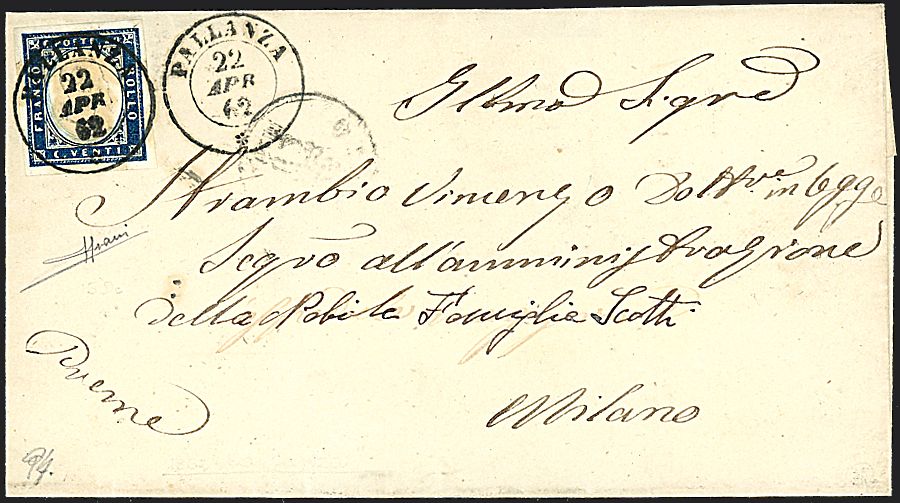 FRANCO C. POSTE BOLLO
C. VENTI
PALLANZA
22
APR
62
PALLANZA
22
APR
62
Illmo Sigre
Strambio Vincenzo Dottre in legge
Segrio all'amministrazione
della Nobile Famiglia Scotti
Milano